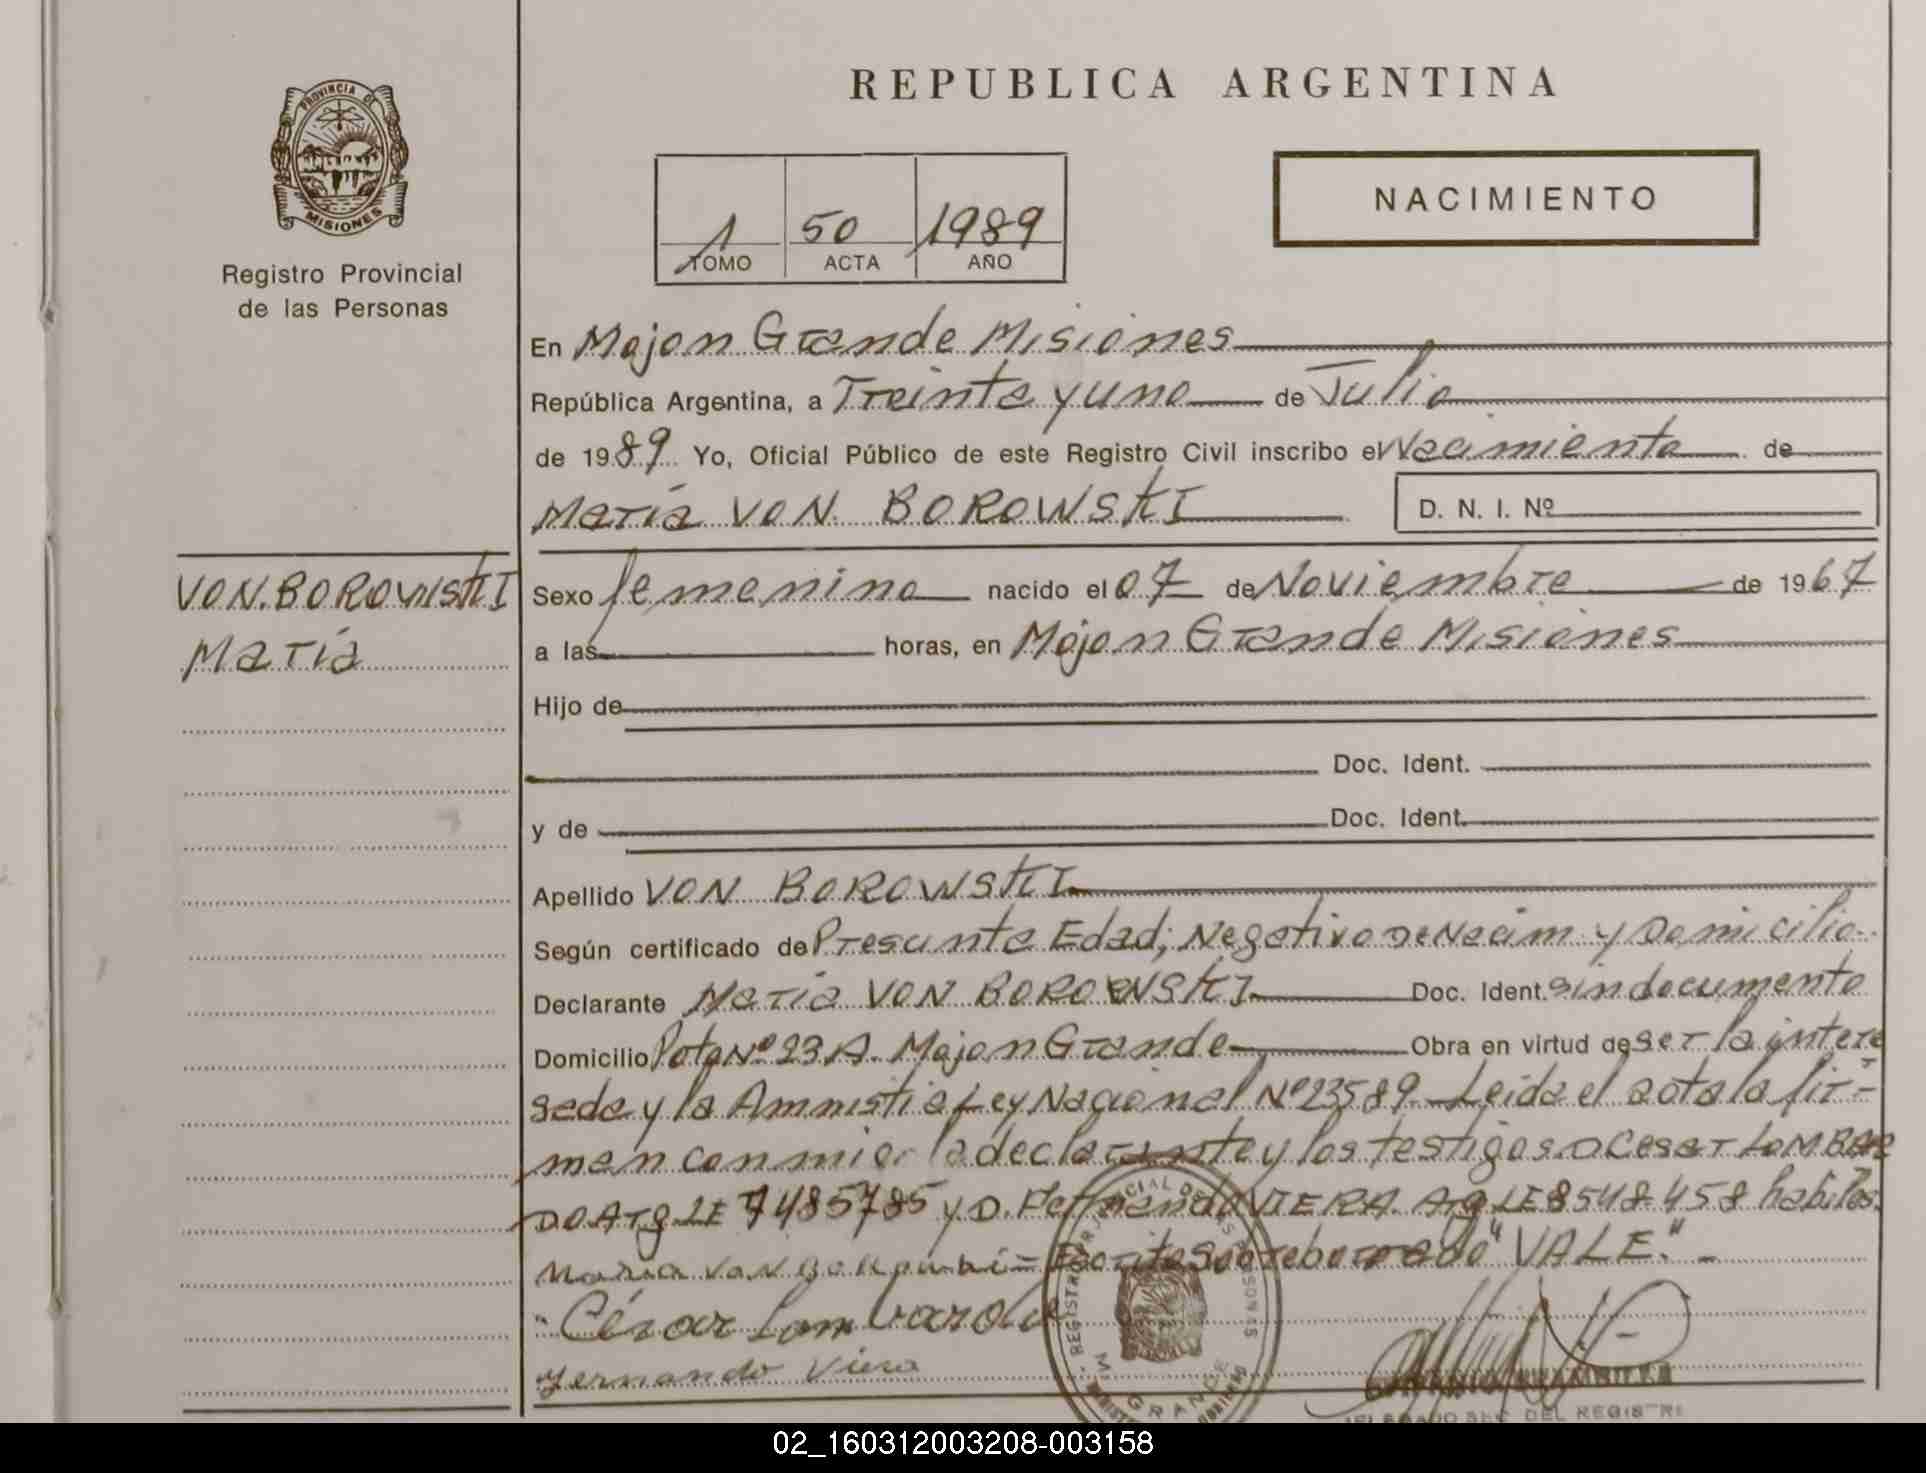 PROVINCIA DE
MISIONES
Registro Provincial
de las Personas
VON. BOROWSKI
María
REPUBLICA ARGENTINA
1 50 1989
TOMO ACTA AÑO
NACIMIENTO
En Mojon Grande Misiones
República Argentina, a Treinta y uno de Julio
de 1989 Yo, Oficial Público de este Registro Civil inscribo el Nacimiento de
María VON BOROWSKI D. N. I. Nº
Sexo femenino nacido el 07 de Noviembre de 1967
a las horas, en Mojon Grande Misiones
Hijo de
Doc. Ident.
y de Doc. Ident.
Apellido VON BOROWSKI
Según certificado de Presunta Edad; Negativo De Nacim y Domicilio
Declarante María VON BOROWSKI Doc. Ident. sin documento
Domicilio Nº 23 A. Mojon Grande Obra en virtud de ser la intere
sada y la Amnistia Ley Nacional Nº 23589 Leida el acta la fir-
man conmigo la declarante y los testigos D Cesar LOMBAR
DO Arg LE 7485785 y D. Fernando VIERA. Arg LE 8548458 habiles.
Maria von Borowski = Escrito Sobreborrado "VALE." -
César Lombardo
Fernando Viera
REGISTRO PROVINCIAL DE LAS PERSONAS
M. GRANDE
DELEGADO SEC DEL REGISTR
02_160312003208-003158